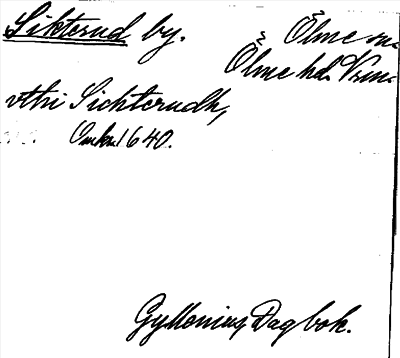 Sikterud by.
Ölme sn.
Ölme hd. Vrml.
vthi Sichterudh,
Omkr. 1640.
Gyllenius, Dagbok.